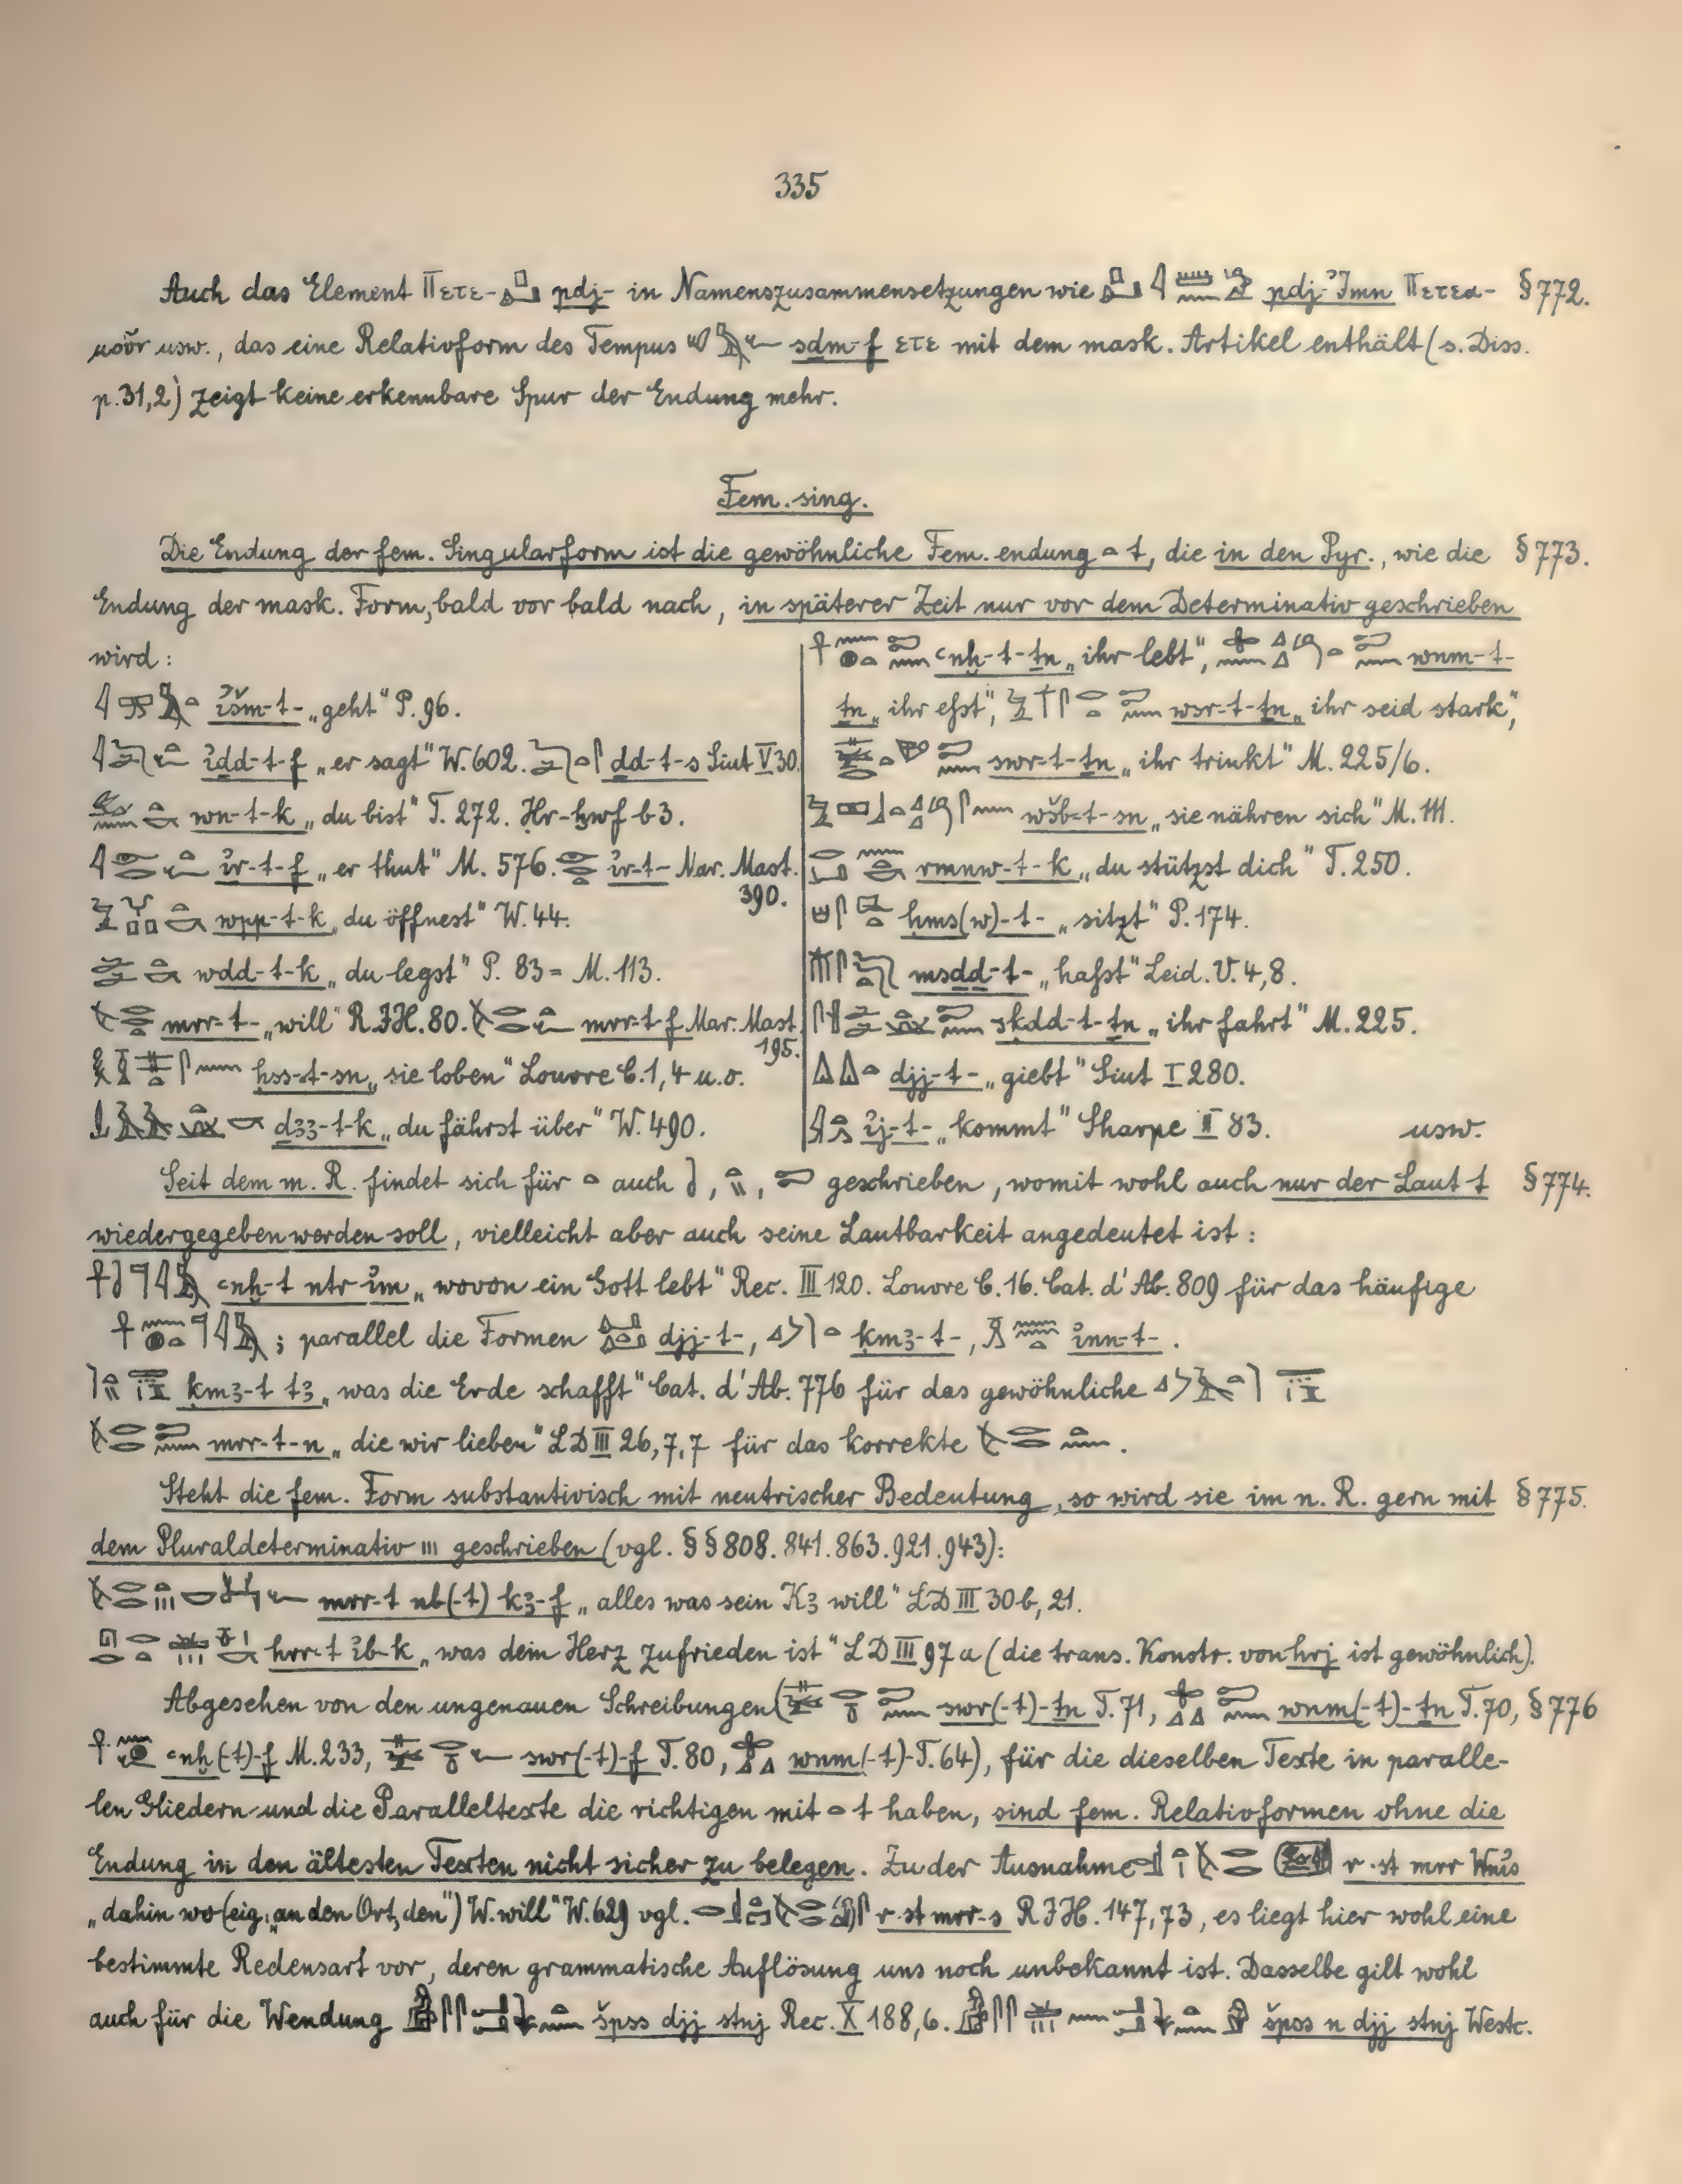 335
Auch das Element Πετε- pdj- in Namenszusammensetzungen wie pdj-ʾImn Πετεα- § 772.
μοῦν usw., das eine Relativform des Tempus sḏm-f ετε mit dem mask. Artikel enthält (s. Diss.
p. 31,2) zeigt keine erkennbare Spur der Endung mehr.
Fem. sing.
Die Endung der fem. Singularform ist die gewöhnliche Fem. endung t, die in den Pyr., wie die § 773.
Endung der mask. Form, bald vor bald nach, in späterer Zeit nur vor dem Determinativ geschrieben
wird:
išm-t- „geht" P. 96.
idd-t-f „er sagt" W. 602. dd-t-s Siut V 30.
wn-t-k „du bist" T. 272. Hr-ḫwf b 3.
ir-t-f „er thut" M. 576. ir-t- Mar. Mast.
390.
wpp-t-k „du öffnest" W. 44.
wdd-t-k „du legst" P. 83 = M. 113.
mrr-t- „will" R.I.H. 80. mrr-t-f Mar. Mast.
195.
ḥss-t-sn „sie loben" Louvre C. 1, 4 u. o.
ḏꜣꜣ-t-k „du fährst über" W. 490.
ꜥnḫ-t-ṯn „ihr lebt", wnm-t-
ṯn „ihr eßt", wsr-t-ṯn „ihr seid stark",
swr-t-ṯn „ihr trinkt" M. 225/6.
wšb-t-sn „sie nähren sich" M. 111.
rmnw-t-k „du stützst dich" T. 250.
ḥms(w)-t- „sitzt" P. 174.
msḏḏ-t- „haßt" Leid. V. 4,8.
skdd-t-ṯn „ihr fahrt" M. 225.
djj-t- „giebt" Siut I 280.
ij-t- „kommt" Sharpe II 83. usw.
Seit dem m. R. findet sich für auch , , geschrieben, womit wohl auch nur der Laut t § 774.
wiedergegeben werden soll, vielleicht aber auch seine Lautbarkeit angedeutet ist:
ꜥnḫ-t nṯr im „wovon ein Gott lebt" Rec. III 120. Louvre C. 16. Cat. d'Ab. 809 für das häufige
; parallel die Formen djj-t-, kmꜣ-t-, inn-t-.
kmꜣ-t tꜣ „was die Erde schafft" Cat. d'Ab. 776 für das gewöhnliche
mrr-t-n „die wir lieben" LD III 26,7,7 für das korrekte .
Steht die fem. Form substantivisch mit neutrischer Bedeutung, so wird sie im n. R. gern mit § 775.
dem Pluraldeterminativ ııı geschrieben (vgl. §§ 808. 841. 863. 921. 943):
mrr-t nb(-t) kꜣ-f „alles was sein Kꜣ will" LD III 30b, 21.
hrr-t ib-k „was dem Herz zufrieden ist" LD III 97a (die trans. Konstr. von hrj ist gewöhnlich).
Abgesehen von den ungenauen Schreibungen ( swr(-t)-ṯn T. 71, wnm(-t)-ṯn T. 70, § 776
ꜥnḫ(-t)-f M. 233, swr(-t)-f T. 80, wnm(-t)- T. 64), für die dieselben Texte in paralle-
len Gliedern und die Paralleltexte die richtigen mit t haben, sind fem. Relativformen ohne die
Endung in den ältesten Texten nicht sicher zu belegen. Zu der Ausnahme r st mrr Wnis
„dahin wo (eig. „an den Ort, den") W. will" W. 629 vgl. r st mrr-s R.I.H. 147, 73, es liegt hier wohl eine
bestimmte Redensart vor, deren grammatische Auflösung uns noch unbekannt ist. Dasselbe gilt wohl
auch für die Wendung špss djj stnj Rec. X 188, 6. špss n djj stnj Westc.